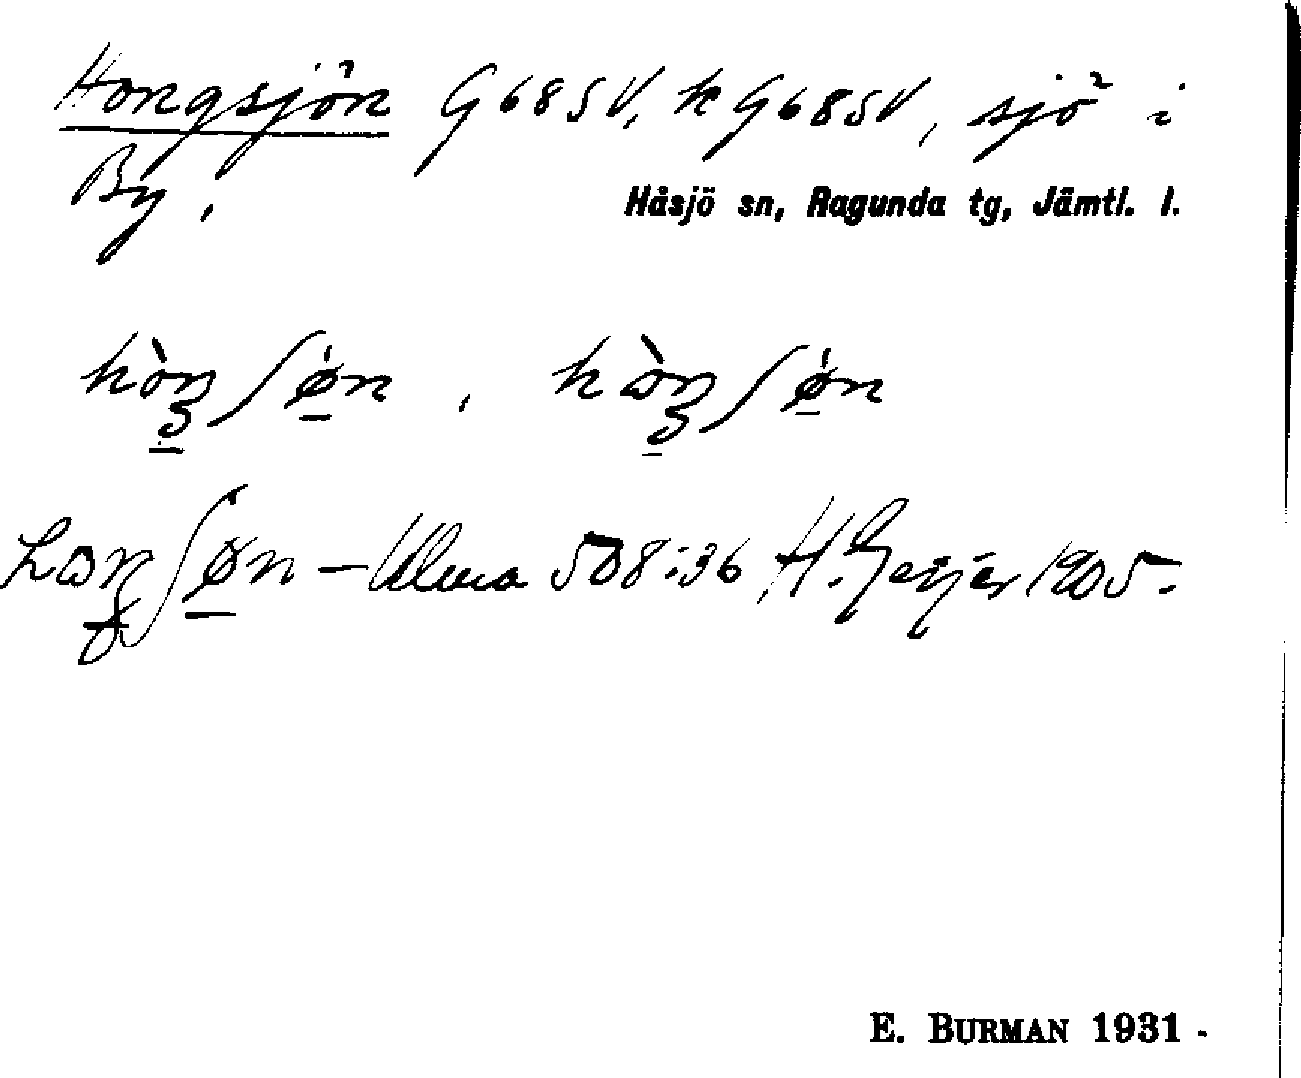 Hongsjön G 68 SV, k G 68 SV, sjö i
By,
Håsjö sn, Ragunda tg, Jämtl. l.
hòŋʃøn, hòŋʃøn
ʃøn – Ulma 508:36 H. Geijer 1905.
E. BURMAN 1931.